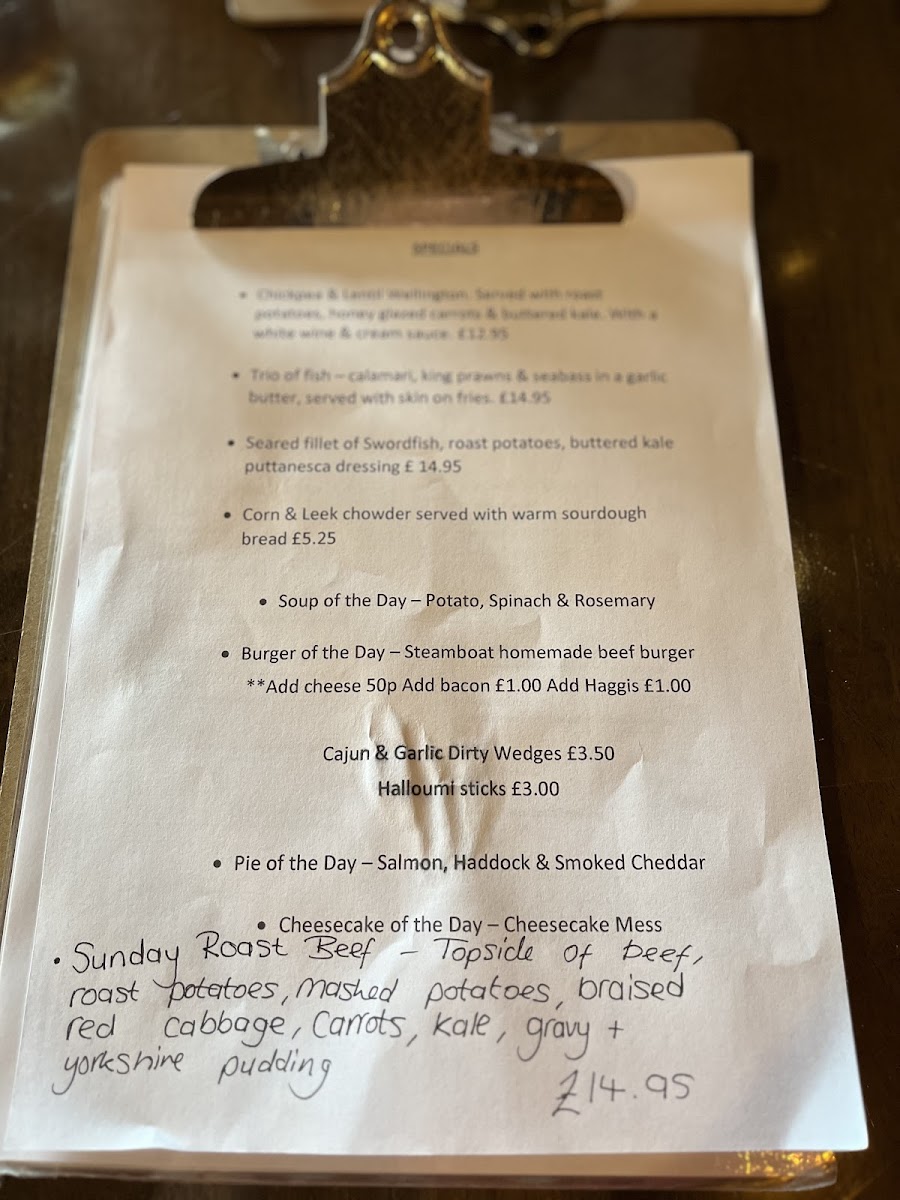 SPECIALS
• Chickpea & Lentil Wellington. Served with roast
potatoes, honey glazed carrots & buttered kale. With a
white wine & cream sauce. £12.95
• Trio of fish – calamari, king prawns & seabass in a garlic
butter, served with skin on fries. £14.95
• Seared fillet of Swordfish, roast potatoes, buttered kale
puttanesca dressing £ 14.95
• Corn & Leek chowder served with warm sourdough
bread £5.25
• Soup of the Day – Potato, Spinach & Rosemary
• Burger of the Day – Steamboat homemade beef burger
**Add cheese 50p Add bacon £1.00 Add Haggis £1.00
Cajun & Garlic Dirty Wedges £3.50
Halloumi sticks £3.00
• Pie of the Day – Salmon, Haddock & Smoked Cheddar
• Cheesecake of the Day – Cheesecake Mess
• Sunday Roast Beef – Topside of beef,
roast potatoes, mashed potatoes, braised
red cabbage, Carrots, kale, gravy +
yorkshire pudding
£14.95